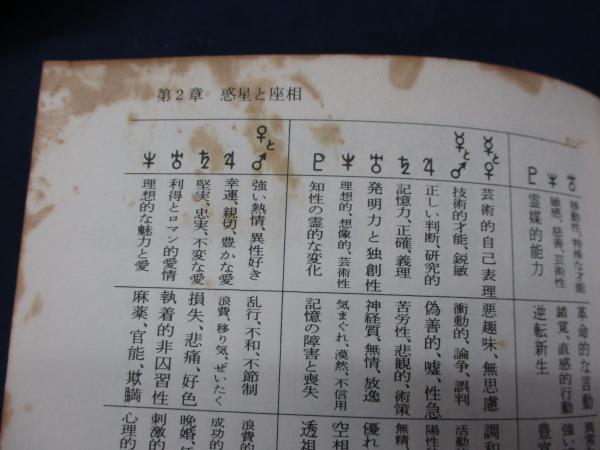 第2章　惑星と座相
♅ 移動性、特殊な才能 革命的な言動
♆ 敏感、慈善、芸術性 錯覚、直感的行動
♇ 霊媒的能力 逆転新生
☿と♀ 芸術的自己表理 悪趣味、無思慮 調和
☿と♂ 技術的才能、鋭敏 衝動的、論争、誤判
♃ 正しい判断、研究的 偽善的、嘘、性急
♄ 記憶力、正確、義理 苦労性、悲観的、術策
♅ 発明力と独創性 神経質、無情、放逸 優れ
♆ 理想的、想像的、芸術性 気まぐれ、漠然、不信用 空相
♇ 知性の霊的な変化 記憶の障害と喪失 透視
♀と♂ 強い熱情、異性好き 乱行、不和、不節制 浪費的
♃ 幸運、親切、豊かな愛 浪費、移り気、ぜいたく 成功的
♄ 堅実、忠実、不変な愛 損失、悲痛、好色 晩婚、
♅ 利得とロマン的愛情 執着的非因習性 刺激的
♆ 理想的な魅力と愛 麻薬、官能、欺瞞 心理的